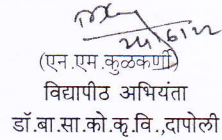 (एन.एम.कुळकर्णी)
विद्यापीठ अभियंता
डॉ.बा.सा.को.कृ.वि.,दापोली